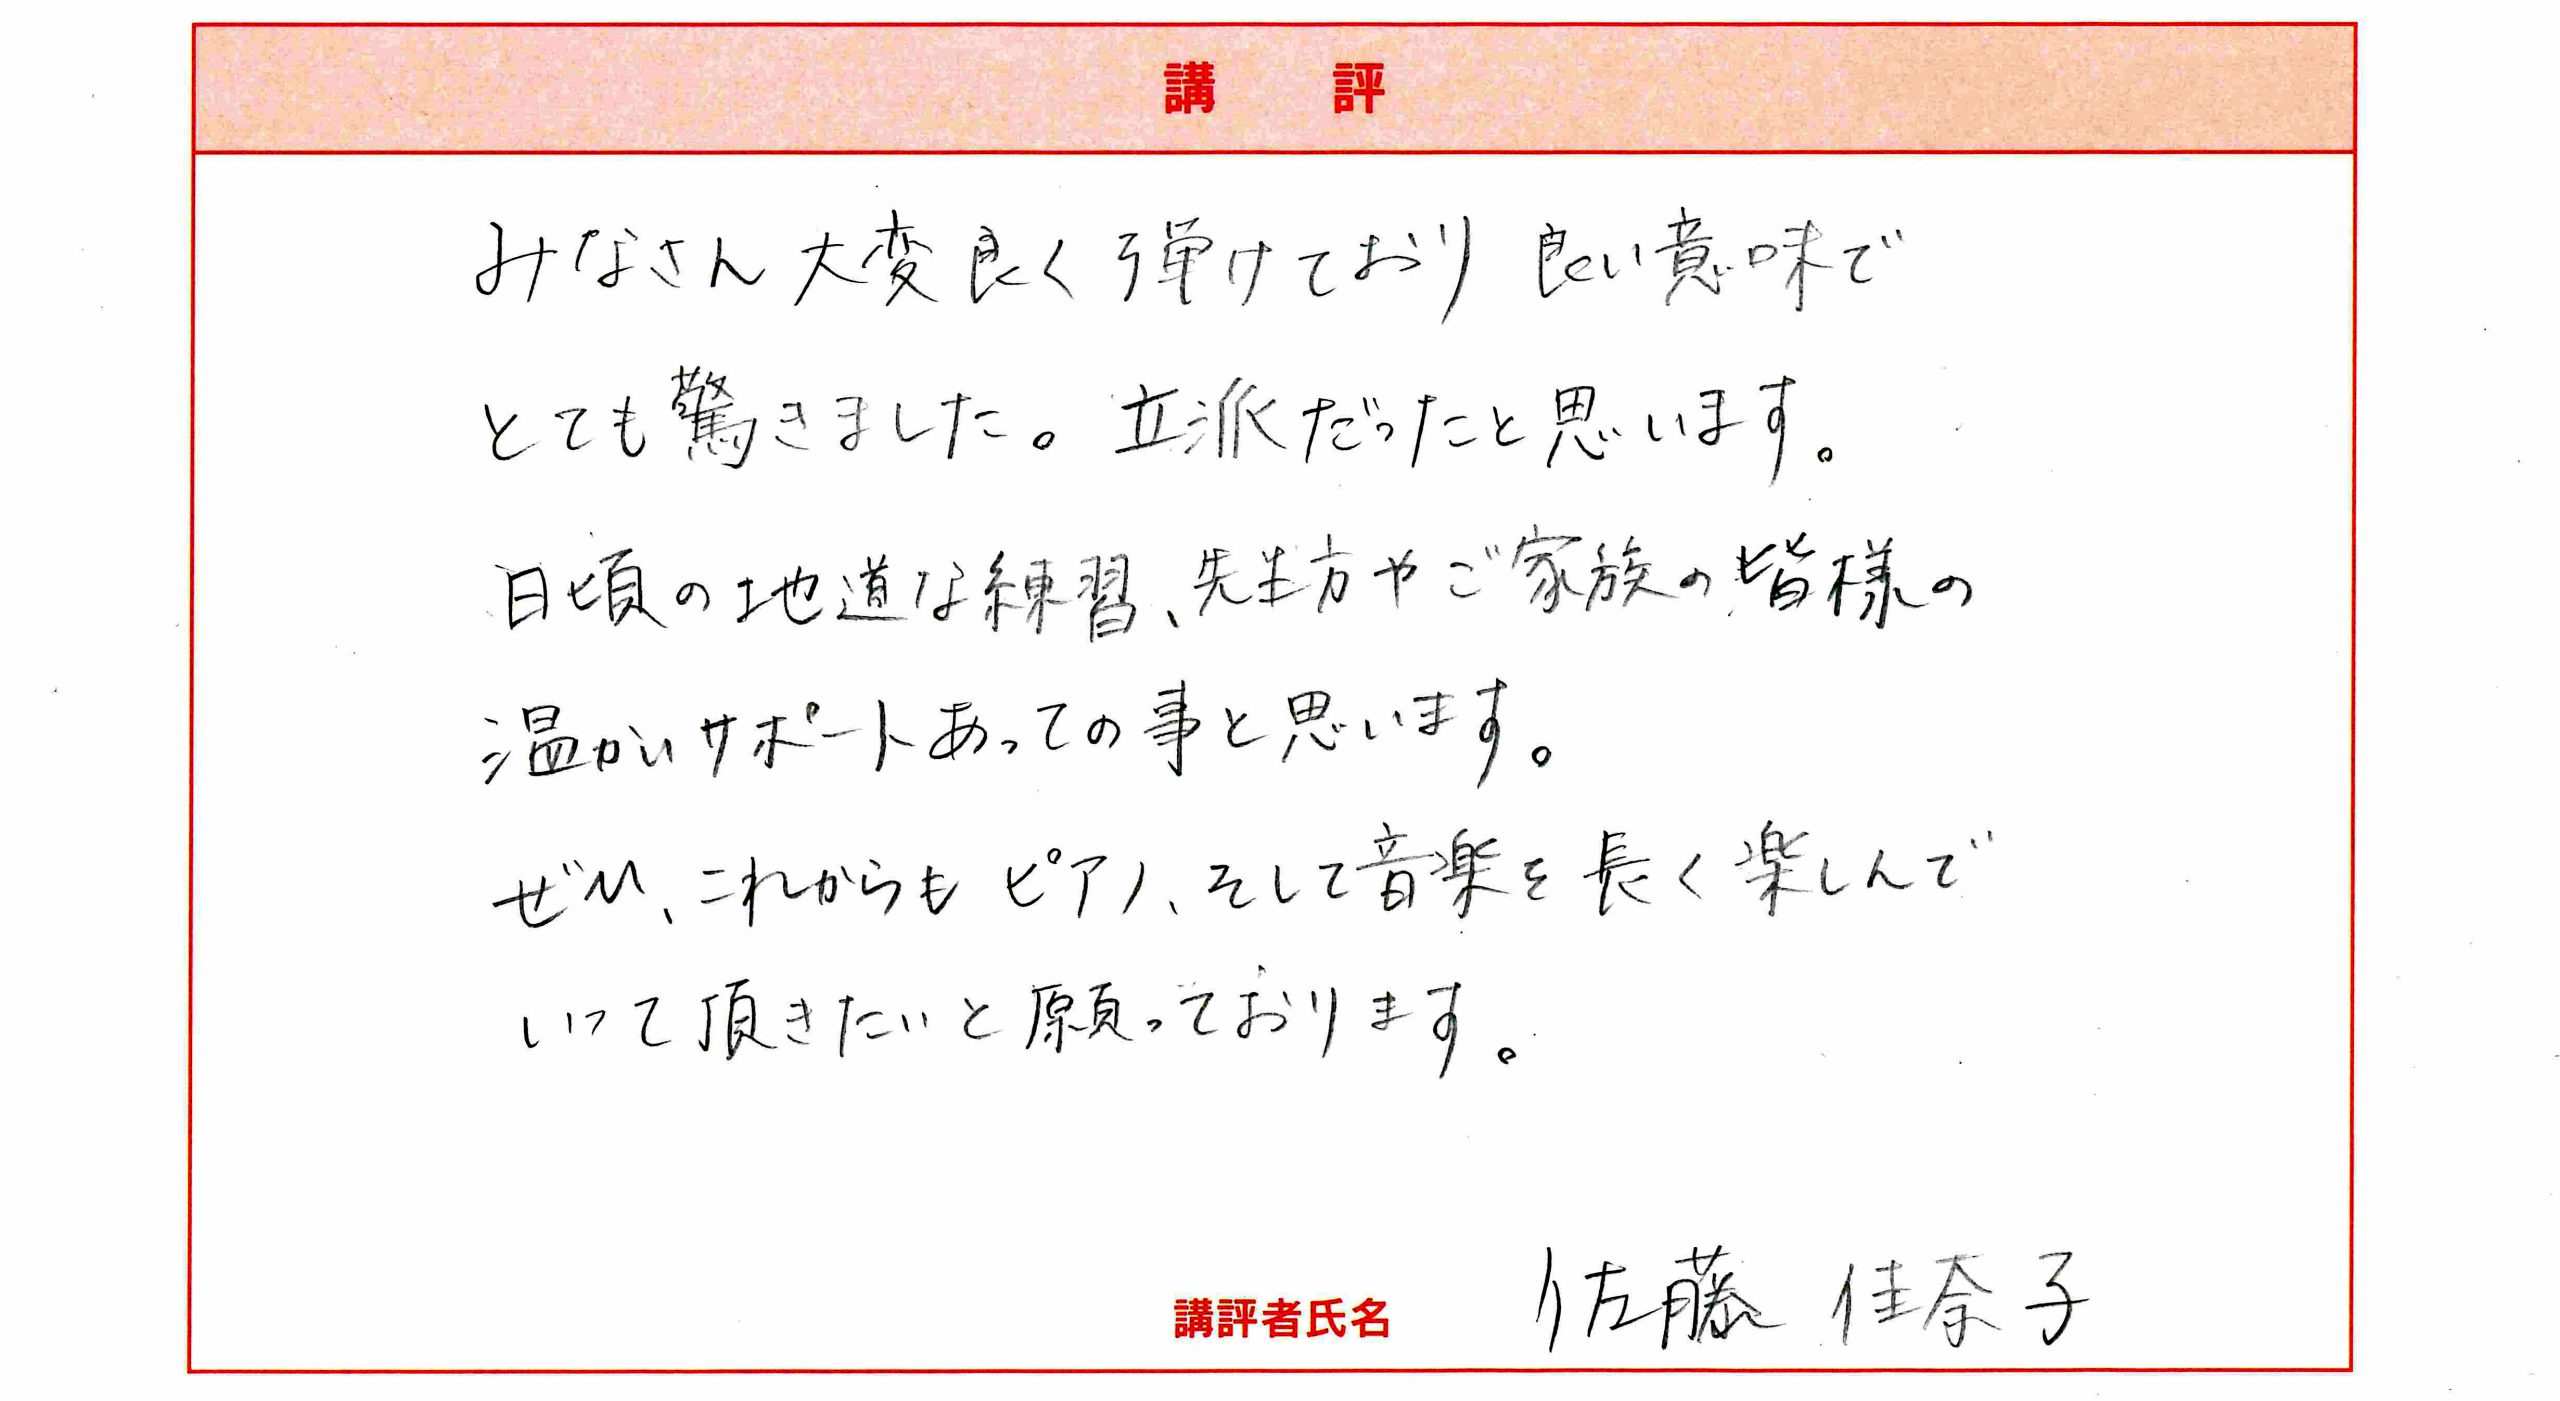 講評
みなさん大変良く弾けており 良い意味で
とても驚きました。立派だったと思います。
日頃の地道な練習、先生方やご家族の皆様の
温かいサポートあっての事と思います。
ぜひ、これからもピアノ、そして音楽を長く楽しんで
いって頂きたいと願っております。
講評者氏名 佐藤 佳奈子